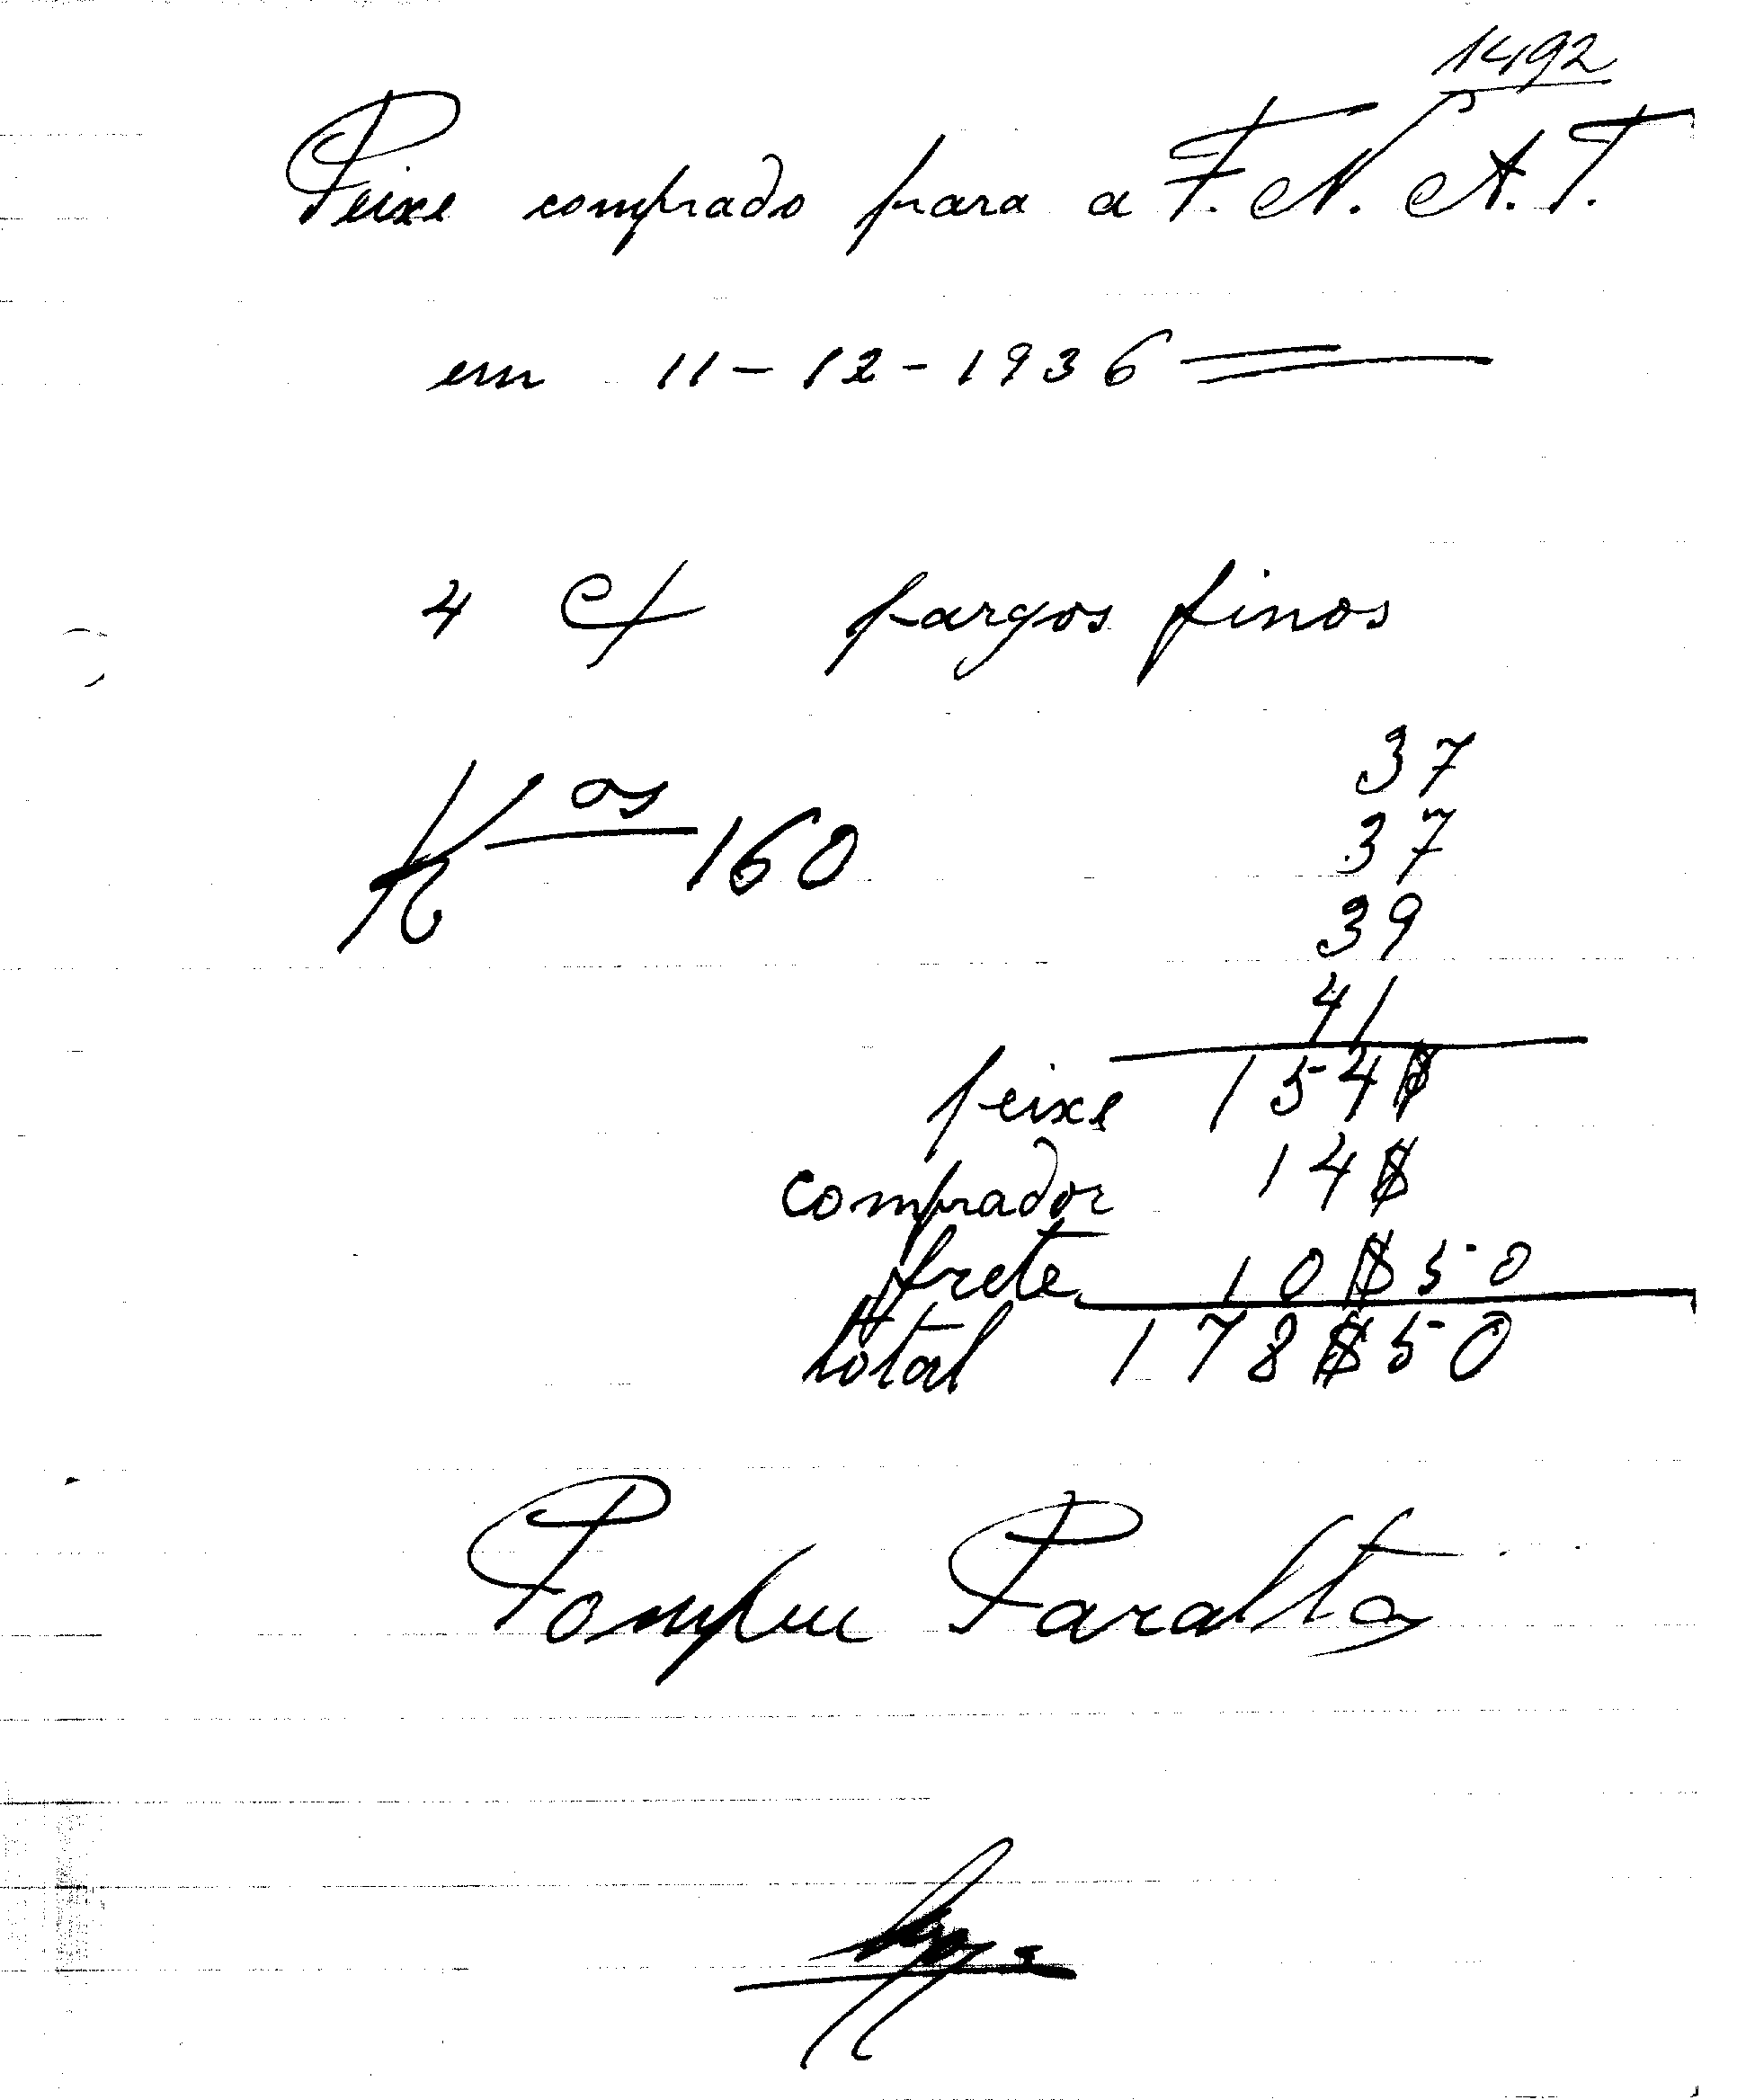 1492
Peixe comprado para a F. N. A. T.
em 11-12-1936
4 Cx pargos finos
37
Kos 160
37
39
41
peixe 154$
comprador 14$
frete 10$50
total 178$50
Pompeu Paralta